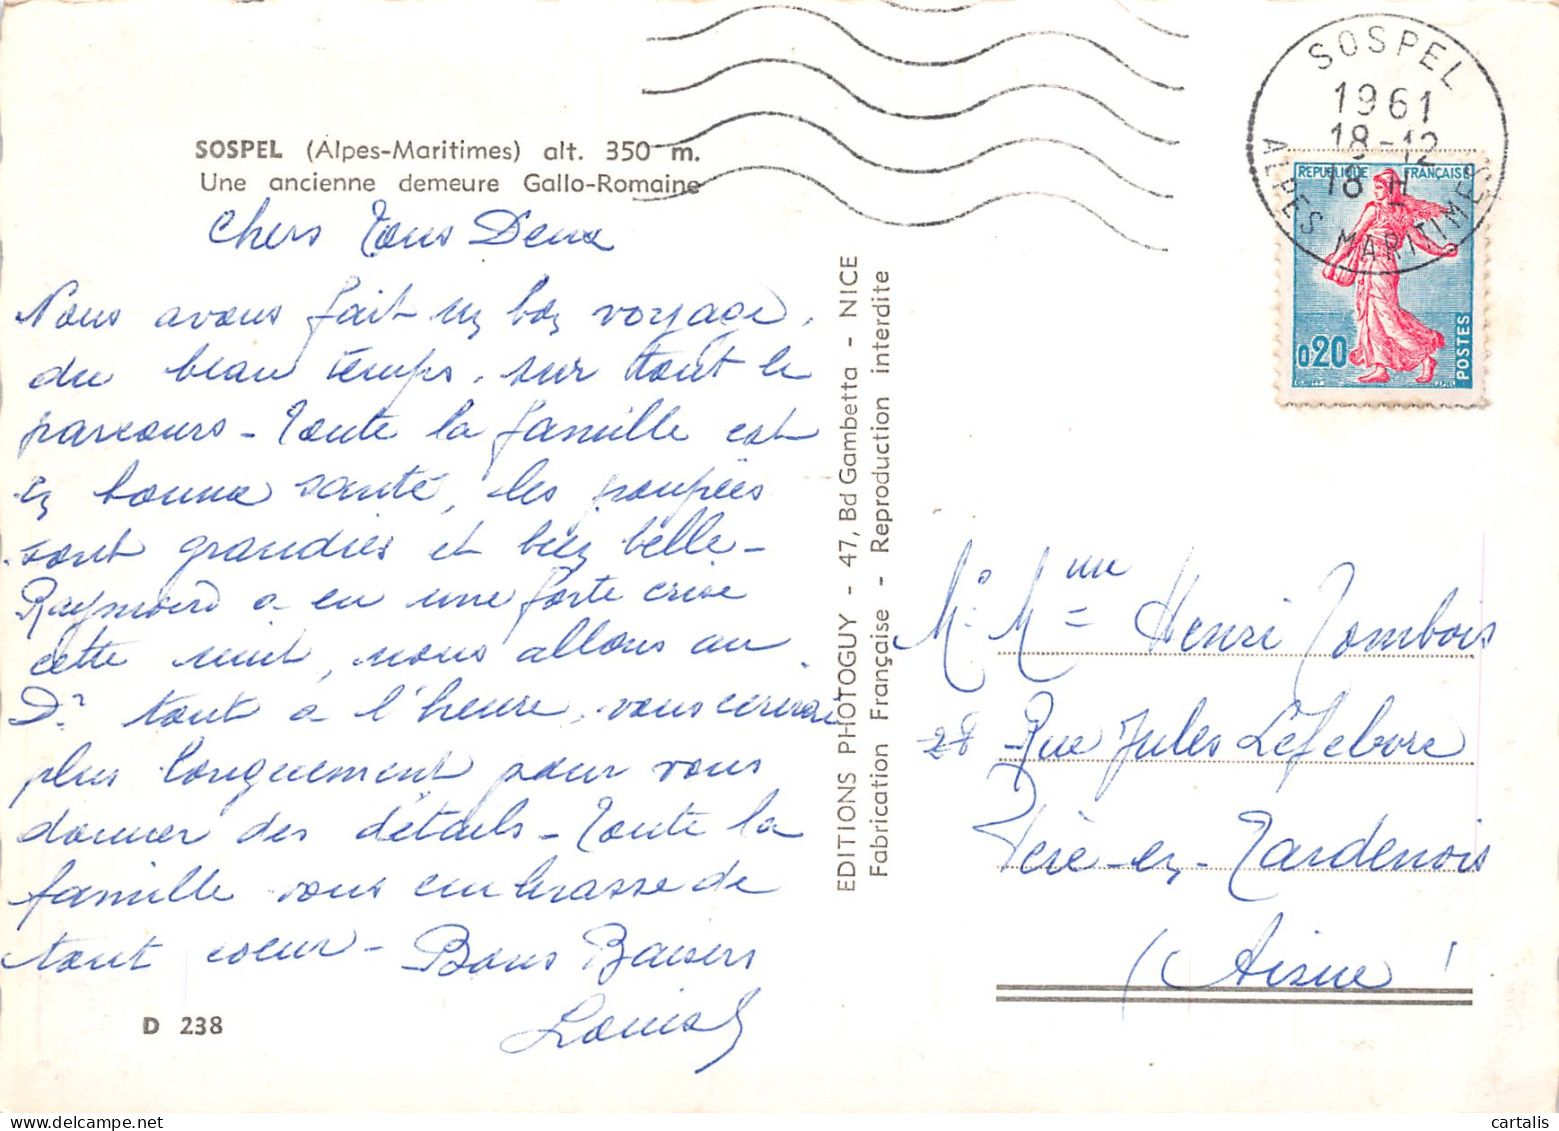 SOSPEL (Alpes-Maritimes) alt. 350 m.
Une ancienne demeure Gallo-Romaine
Chers Tous Deux
Nous avons fait un bon voyage,
du beau temps sur tout le
parcours - Toute la famille est
en bonne santé, les poupées
sont grandies et bien belle -
Raymond a eu une forte crise
cette nuit, nous allons au
Dr tout à l'heure, vous écrirai
plus longuement pour vous
donner des détails - Toute la
famille vous embrasse de
tout coeur - Bons Baisers
D 238
EDITIONS PHOTOGUY - 47, Bd Gambetta - NICE
Fabrication Française - Reproduction interdite
SOSPEL
1961
18-12
18 H
ALPES MARITIMES
REPUBLIQUE FRANÇAISE
0,20
POSTES
Mr Mme Henri Tombois
28 Rue Jules Lefebvre
Fère-en-Tardenois
(Aisne)
cartalis